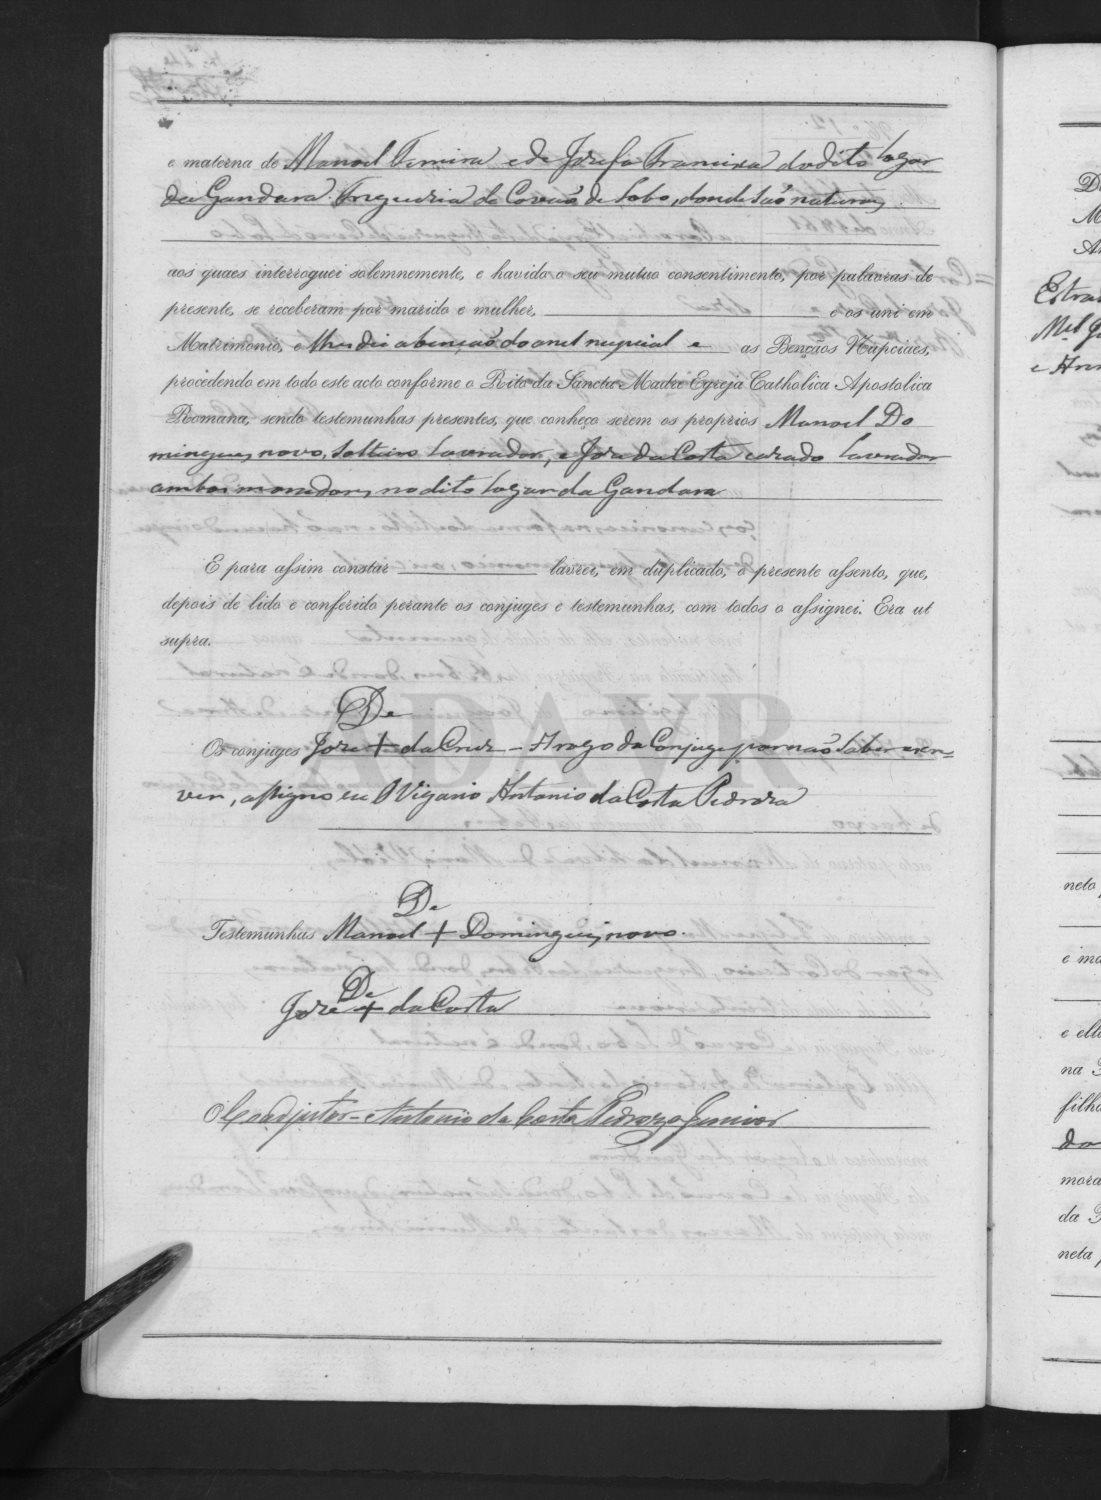 e materna de Manoel Ferreira e de Josefa Francisca do dito lugar
da Gandara Freguezia de Covão do Lobo, donde são naturaes,
aos quaes interroguei solemnemente, e havido o seu mutuo consentimento, por palavras de
presente, se receberam por marido e mulher, e os uni em
Matrimonio, e lhes dei a benção do anel nupcial e as Bençãos Nupciaes,
procedendo em todo este acto conforme o Rito da Sancta Madre Egreja Catholica Apostolica
Romana, sendo testemunhas presentes, que conheço serem os proprios Manoel Do
mingues, novo, solteiro lavrador, e Jose da Costa casado lavrador
ambos moradores, no dito lugar da Gandara
E para assim constar lavrei, em duplicado, o presente assento, que,
depois de lido e conferido perante os conjuges e testemunhas, com todos o assignei. Era ut
supra.
De
Os conjuges Jose + da Cruz – A rogo da Conjuge por não saber escre=
ver, assigno eu O Vigario Antonio da Costa Pedroza
De
Testemunhas Manoel + Domingues, novo.
De
Jose + da Costa
O Coadjutor – Antonio da Costa Pedroza Junior
De
M
An
Estra
Mel
e
neto
e ma
e ella
na
filha
da
mora
da
neta